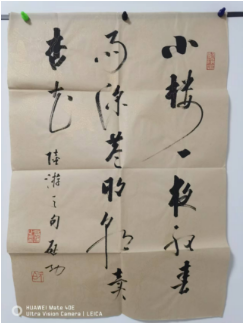 小樓一夜聽春
雨深巷明朝賣
杏花
陸游之句 啟功
HUAWEI Mate 40E
Ultra Vision Camera | LEICA